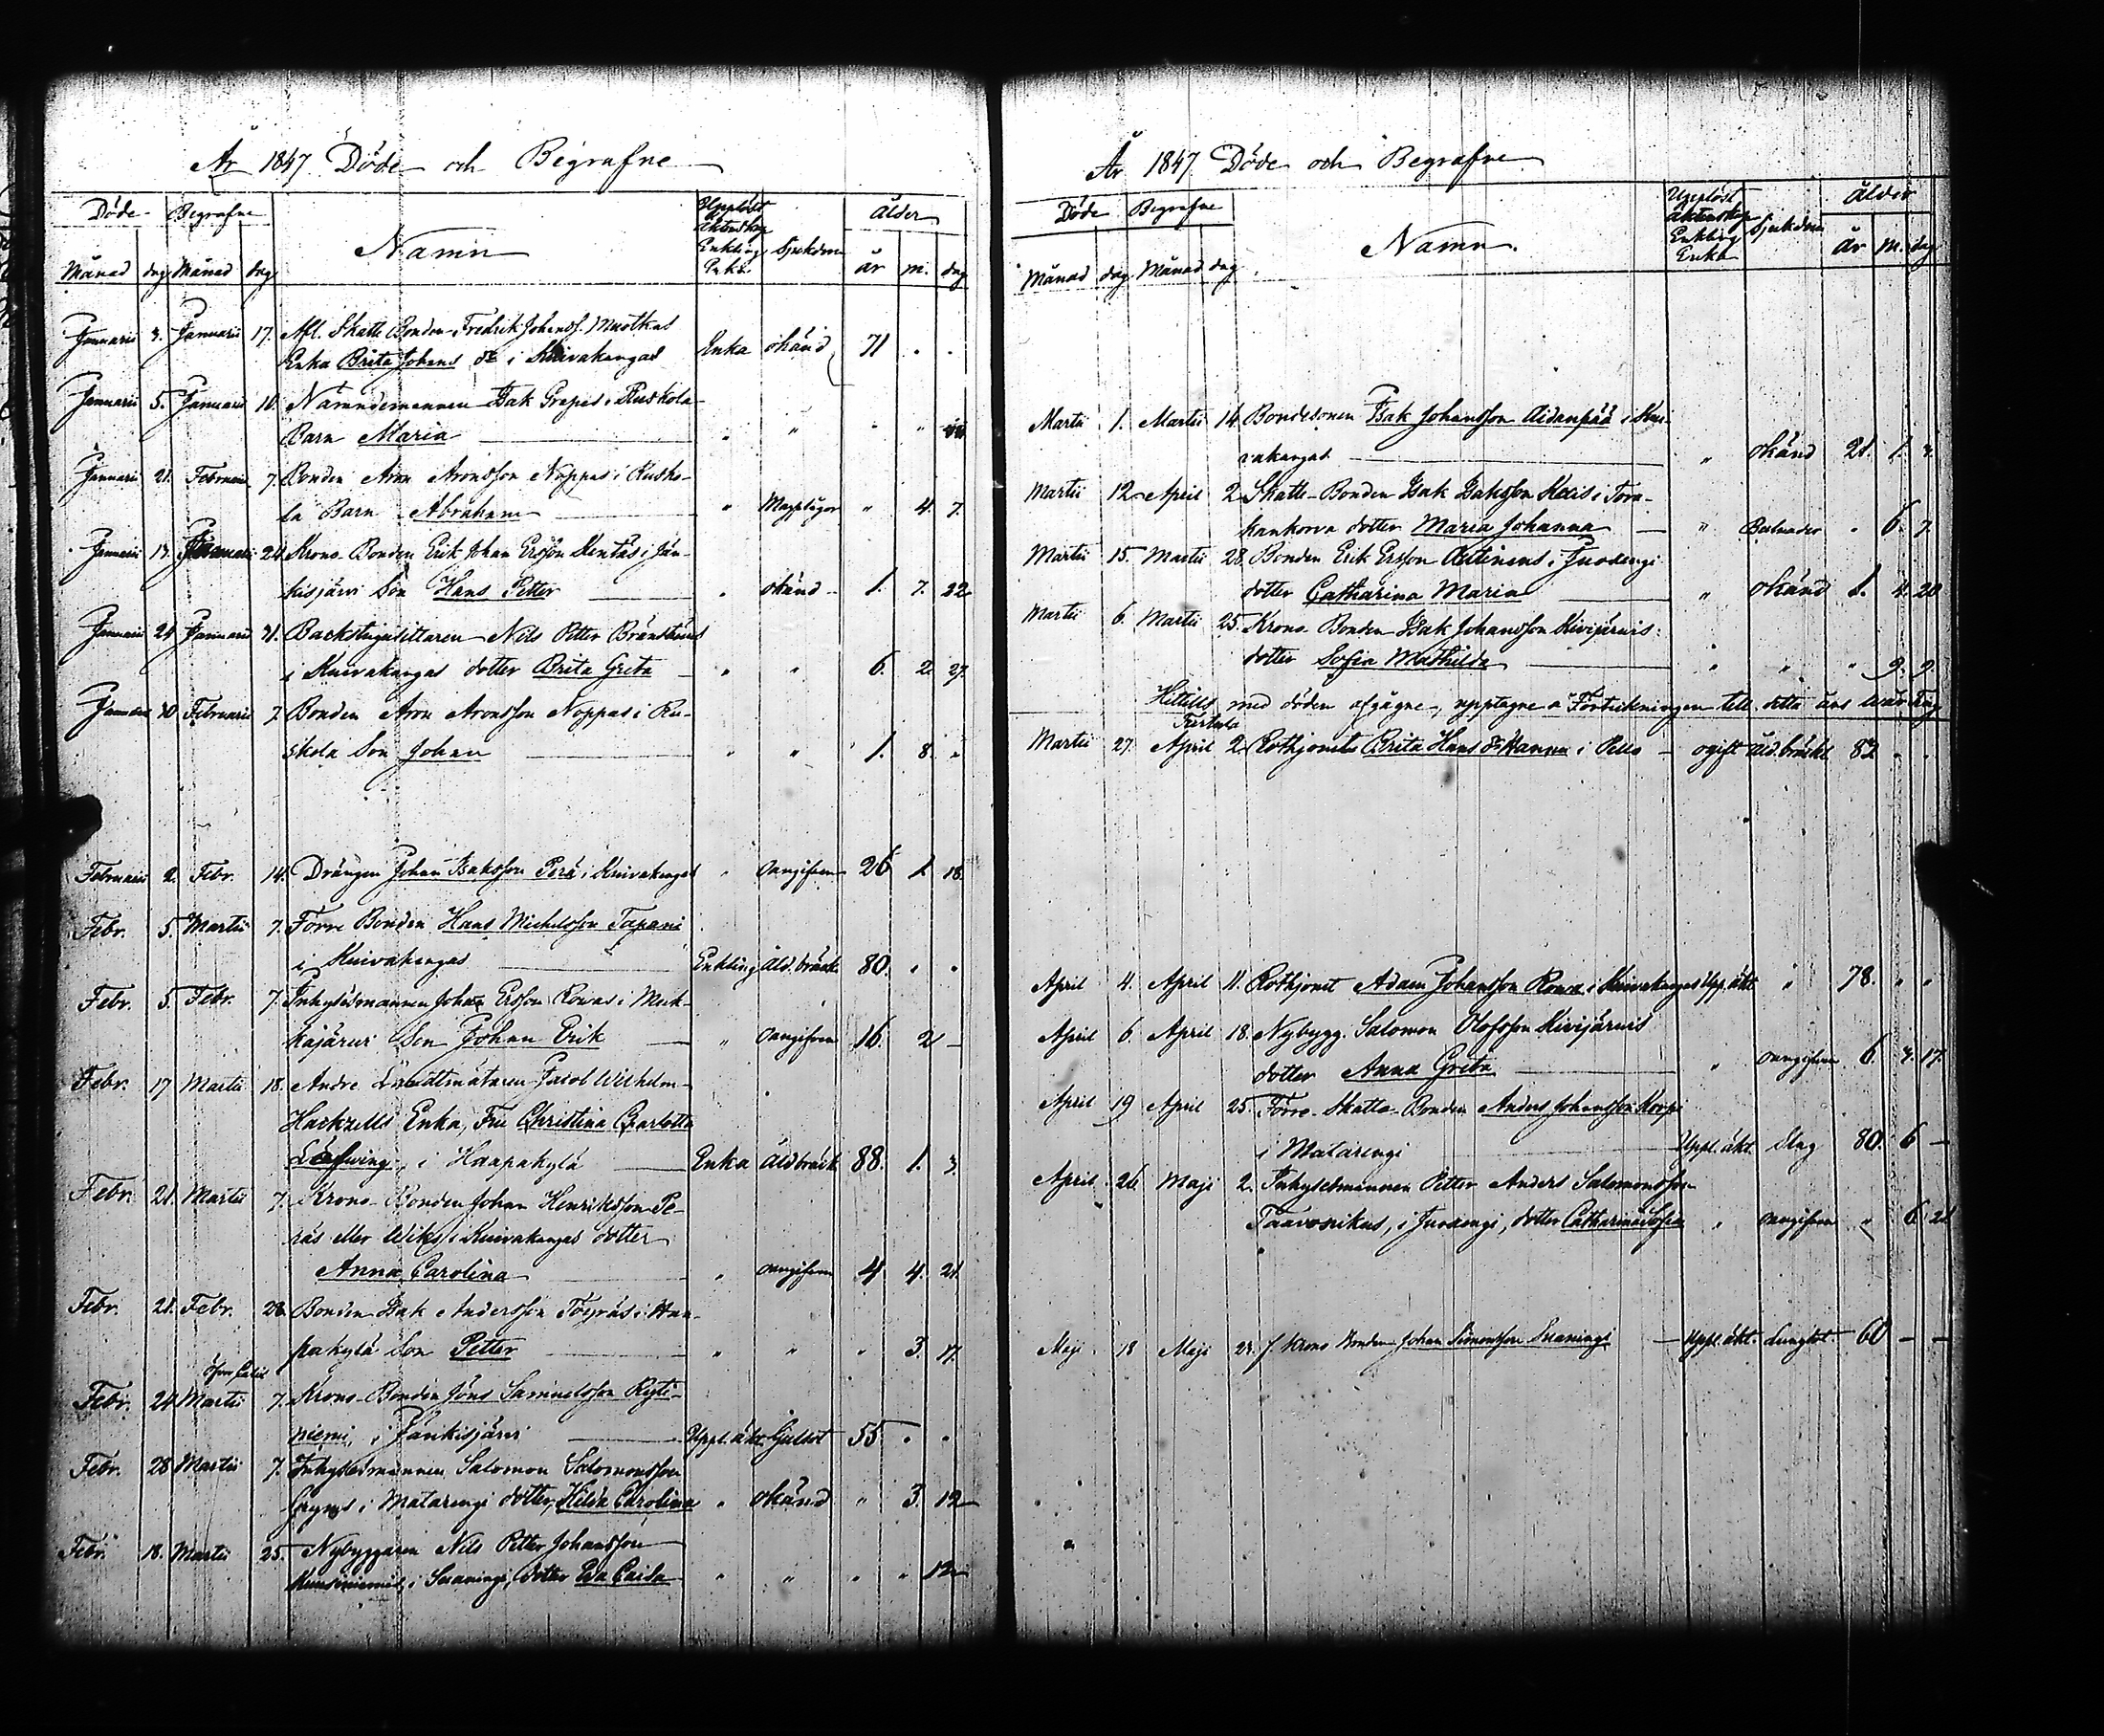 År 1847 Döde och Begrafne
Döde Begrafne Namn Upplöst äktenskap Enkling Enka Sjukdom ålder
Månad dag Månad dag år m. dag
Januarii 3. Januarii 17. Afl. Skatte Bonden Fredrik Johanss. Muotkas
Enka Brita Johans dr i Kuivakangas Enka okänd 71 . .
Januarii 5. Januarii 10. Nämndemannen Isak Grapes i Ruskola
Barn Maria " " " "
Januarii 21. Februarii 7. Bonden Aron Aronsson Noppas i Rusko-
la Barn Abraham " Mässlingor " 4. 7.
Januarii 13. Januarii 24. Krono Bonden Erik Johan Ersson Kentäs i Jän-
kisjärvi Son Hans Petter " okänd 1. 7. 22
Januarii 24 Januarii 31. Backstugusittaren Nils Petter Brännströms
i Kuivakangas dotter Brita Greta " " 6. 2. 27.
Januarii 30 Februarii 7. Bonden Aron Aronsson Noppas i Ru-
skola Son Johan " " 1. 8. "
Februarii 2. Febr. 14. Drängen Johan Isaksson Perä i Kuivakangas " oangifven 26 1. 18.
Febr. 5. Martii 7. Förre Bonden Hans Michelsson Tapani
i Kuivakangas Enkling Åld. bräck. 80. . .
Febr. 5. Febr. 7. Inhysesmannen Johan Ersson Rowas i
kajärvi Son Johan Erik " oangifven 16. 2 –
Febr. 17 Martii 18. Andre Landtmätaren Jacob Wilhelm
Hackzells Enka, Fru Christina Charlotta
i Haapakylä Enka Åld bräck 88. 1. 3.
Febr. 21. Martii 7. Krono-Bonden Johan Henriksson Pe-
räs eller i Kuivakangas dotter
Anna Carolina " oangifven 4 4. 21.
Febr. 21. Febr. 28. Bonden Isak Andersson Töyräs i Haa-
pakylä Son Petter " " " 3. 17.
Febr. 24 Martii 7. Krono-Bonden Jöns Samuelsson Kyti-
niemi, i Jänkisjärvi Uppl. äkt. Gulsot 55 . .
Febr. 28 Martii 7. Inhysesmannen Salomon Salomonsson
i Matarengi dotter, Hilda Carolina " okänd " 3. 12
Febr. 18. Martii 25. Nybyggaren Nils Petter Johansson
i Svanengi, dotter Eva Caisa " " " " 12
År 1847 Döde och Begrafne
Döde Begrafne Namn. Upplöst äktenskap Enkling Enka Sjukdom ålder
Månad dag Månad dag år m. dag
Martii 1. Martii 14 Bondesonen Isak Johansson Aidanpää i Kui-
vakangas " okänd 21. 1. 3.
Martii 12 April 2 Skatte-Bonden Isak Isaksson Keis i Tora-
kankorva dotter Maria Johanna " " 6. 7.
Martii 15. Martii 28. Bonden Erik Ersson i Juoxengi
dotter Catharina Maria " okänd 1. 4. 20
Martii 6. Martii 25. Krono-Bonden Isak Johansson Kivijärvis
dotter Sofia Mathilda " " " 9. 9.
Hittills med döden afgågne, upptagne a Förteckningen till detta års
Martii 27. April 2 Rothjonet Brita Hans dr Hannu i Pello – ogift åld. bräckl. 82 . .
April 4. April 11. Rothjonet Adam Johansson Rowa i Kuivakangas Upp. äkt. " 78. " "
April 6. April 18. Nybygg. Salomon Olofsson Kivijärvis
dotter Anna Greta " oangifven 6. 3. 17.
April 19 April 25. Förre Skatte-Bonden Anders Johansson Korpi
i Matarengi Uppl. äkt. Slag 80. 6 –
April 26. Maji 2. Inhysesmannen Petter Anders Salomonsson
Taavonikus, i Juoxengi, dotter Catharina Sofia " oangifven " 6 21
Maji 18 Maji 23. f. Krono Bonden Johan Simonsson Svanengi – Uppl. äkt. Lungsot 60 – –